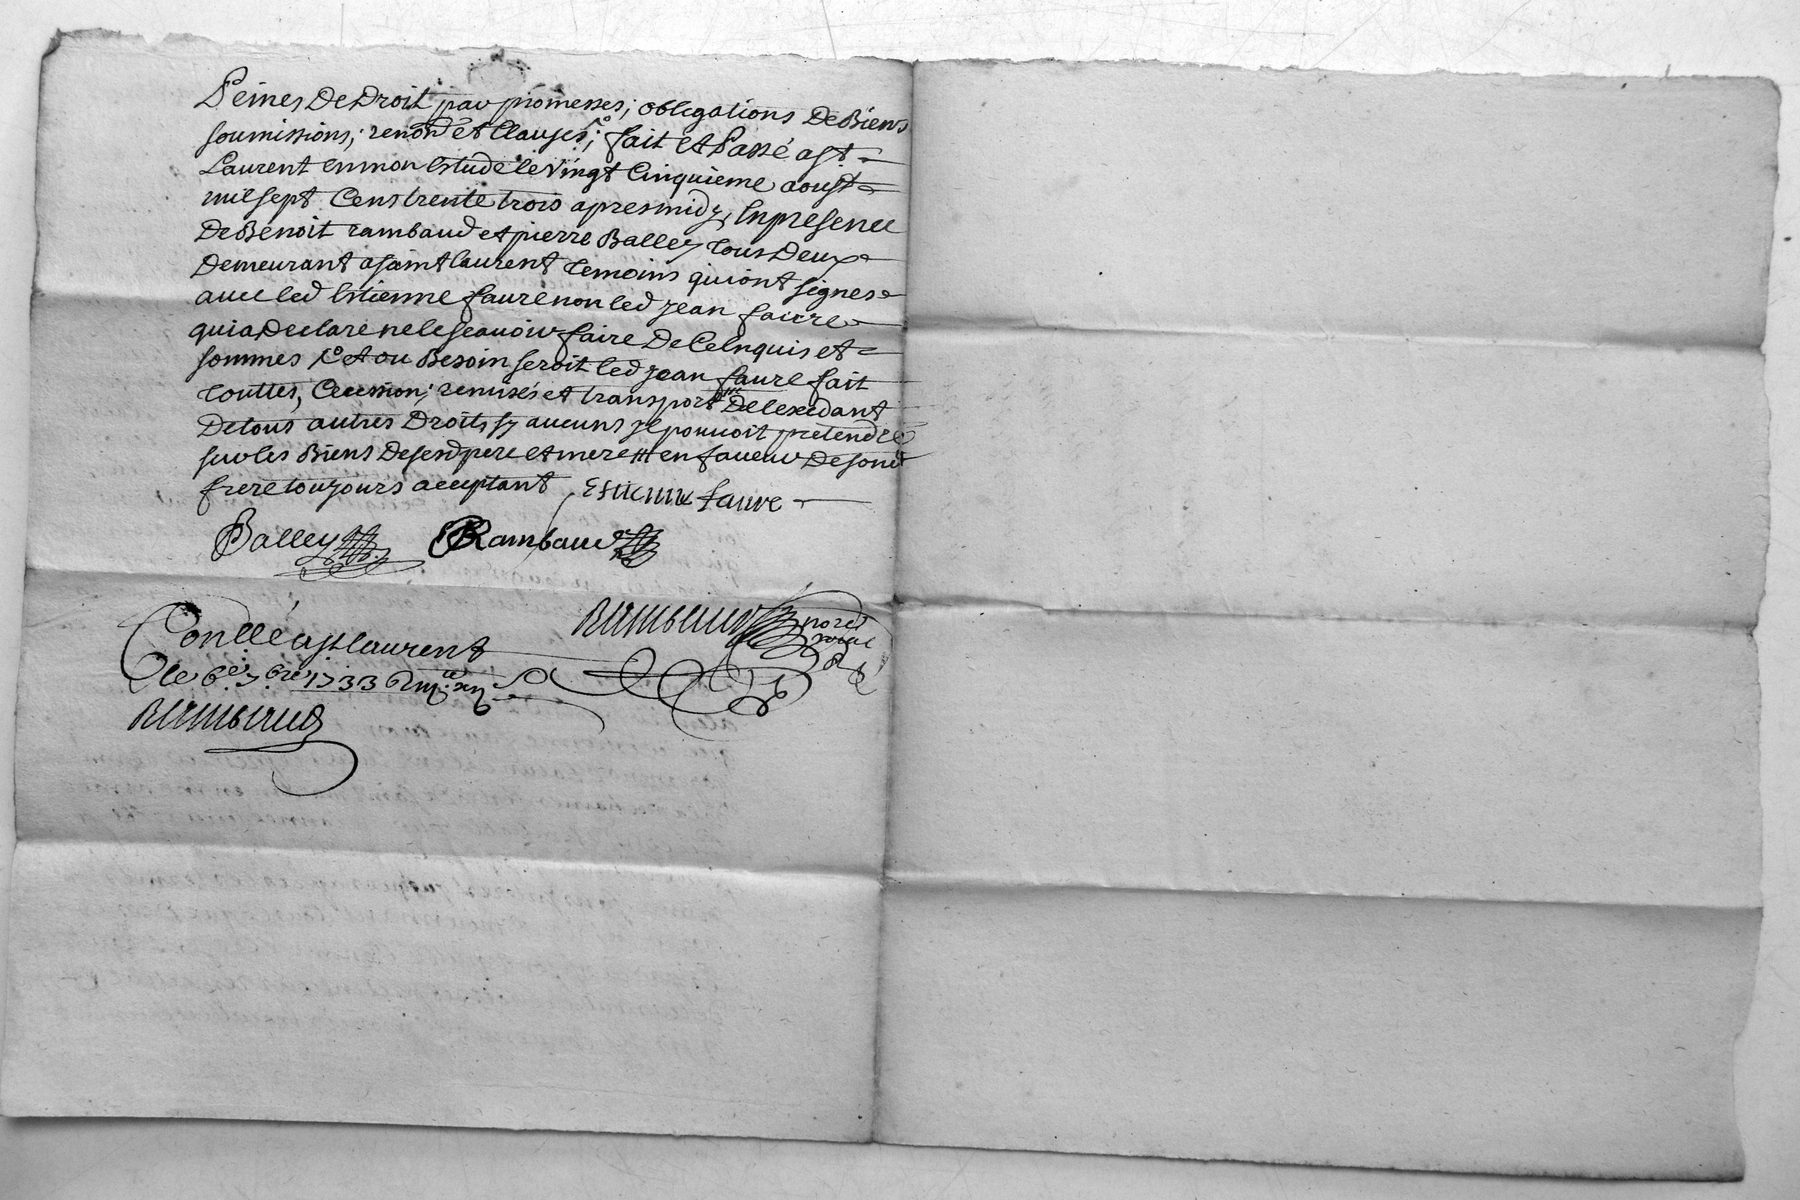 Peines De Droit par promesses; obligations De Biens
soumissions; renon.ons et Clauses; fait et Passé a st.
Laurent en mon Estude le vingt Cinquieme aoust
mil sept Cens trente trois apres midy, En presence
De Benoit rambaud et pierre Balley tous Deux
Demeurant a saint laurent temoins qui ont signes
avec led Estienne faure non led jean faure
qui a Declaré ne le scavoir faire De Ce Enquis et
sommes et ou Besoin seroit led jean faure fait
touttes, Cecssion; remises et transport De lexedant
De tous autres Droits sy aucuns il pouvoit pretendre
sur les Biens Desesd pere et mere en faveur De sond
frere toujours acceptant Estienne faure
Balley Rambaud
Rambaud no.re royal
Con.llé a st laurent
le 6e 7bre 1733
Rambaud